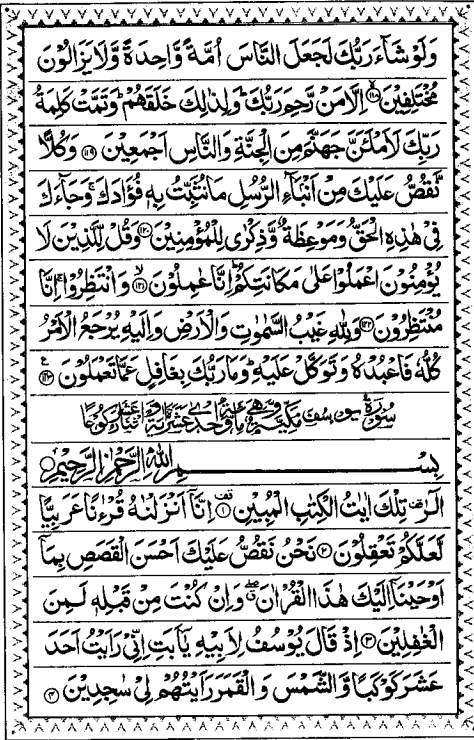 وَلَوْ شَآءَ رَبُّكَ لَجَعَلَ النَّاسَ اُمَّةً وَّاحِدَةً وَّلَا يَزَالُوْنَ
مُخْتَلِفِيْنَ ﴿۱۱۸﴾ اِلَّا مَنْ رَّحِمَ رَبُّكَ ؕ وَلِذٰلِكَ خَلَقَهُمْ ؕ وَتَمَّتْ كَلِمَةُ
رَبِّكَ لَاَمْلَئَنَّ جَهَنَّمَ مِنَ الْجِنَّةِ وَالنَّاسِ اَجْمَعِيْنَ ﴿۱۱۹﴾ وَكُلًّا
نَّقُصُّ عَلَيْكَ مِنْ اَنْۢبَآءِ الرُّسُلِ مَا نُثَبِّتُ بِهٖ فُؤَادَكَ ۚ وَجَآءَكَ
فِیْ هٰذِهِ الْحَقُّ وَمَوْعِظَةٌ وَّذِكْرٰی لِلْمُؤْمِنِيْنَ ﴿۱۲۰﴾ وَقُلْ لِّلَّذِيْنَ لَا
يُؤْمِنُوْنَ اعْمَلُوْا عَلٰی مَكَانَتِكُمْ ؕ اِنَّا عٰمِلُوْنَ ﴿۱۲۱﴾ وَانْتَظِرُوْا ۚ اِنَّا
مُنْتَظِرُوْنَ ﴿۱۲۲﴾ وَلِلّٰهِ غَيْبُ السَّمٰوٰتِ وَالْاَرْضِ وَاِلَيْهِ يُرْجَعُ الْاَمْرُ
كُلُّهٗ فَاعْبُدْهُ وَتَوَكَّلْ عَلَيْهِ ؕ وَمَا رَبُّكَ بِغَافِلٍ عَمَّا تَعْمَلُوْنَ ﴿۱۲۳﴾
سُوْرَةُ يُوْسُفَ مَكِّيَّةٌ وَّهِيَ مِائَةٌ وَّاِحْدٰی عَشَرَةَ اٰيَةً وَّاثْنَا عَشَرَ رُكُوْعًا
بِسْمِ اللّٰهِ الرَّحْمٰنِ الرَّحِيْمِ
الٓرٰ ۟ تِلْكَ اٰيٰتُ الْكِتٰبِ الْمُبِيْنِ ﴿۱﴾ اِنَّآ اَنْزَلْنٰهُ قُرْءٰنًا عَرَبِيًّا
لَّعَلَّكُمْ تَعْقِلُوْنَ ﴿۲﴾ نَحْنُ نَقُصُّ عَلَيْكَ اَحْسَنَ الْقَصَصِ بِمَآ
اَوْحَيْنَآ اِلَيْكَ هٰذَا الْقُرْاٰنَ ۖ وَاِنْ كُنْتَ مِنْ قَبْلِهٖ لَمِنَ
الْغٰفِلِيْنَ ﴿۳﴾ اِذْ قَالَ يُوْسُفُ لِاَبِيْهِ يٰۤاَبَتِ اِنِّیْ رَاَيْتُ اَحَدَ
عَشَرَ كَوْكَبًا وَّالشَّمْسَ وَالْقَمَرَ رَاَيْتُهُمْ لِیْ سٰجِدِيْنَ ﴿۴﴾